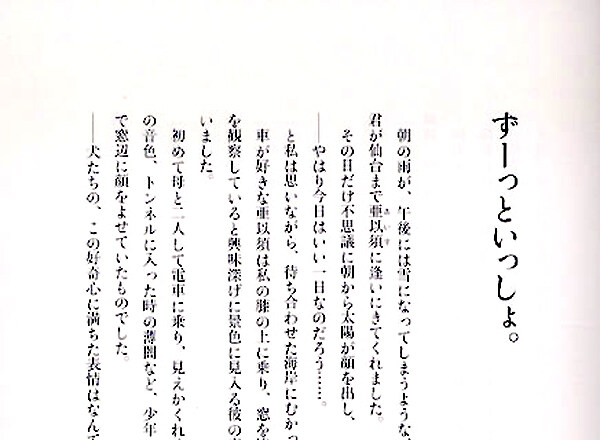 ずーっといっしょ。
朝の雨が、午後には雪になってしまうような、
君が仙台まで亜以須に逢いにきてくれました。
その日だけ不思議に朝から太陽が顔を出し、
──やはり今日はいい一日なのだろう……。
と私は思いながら、待ち合わせた海岸にむかっ
車が好きな亜以須は私の膝の上に乗り、窓を
を観察していると興味深げに景色に見入る彼の
いました。
初めて母と二人して電車に乗り、見えかくれ
の音色、トンネルに入った時の薄闇など、少年
で窓辺に顔をよせていたものでした。
──犬たちの、この好奇心に満ちた表情はなんて